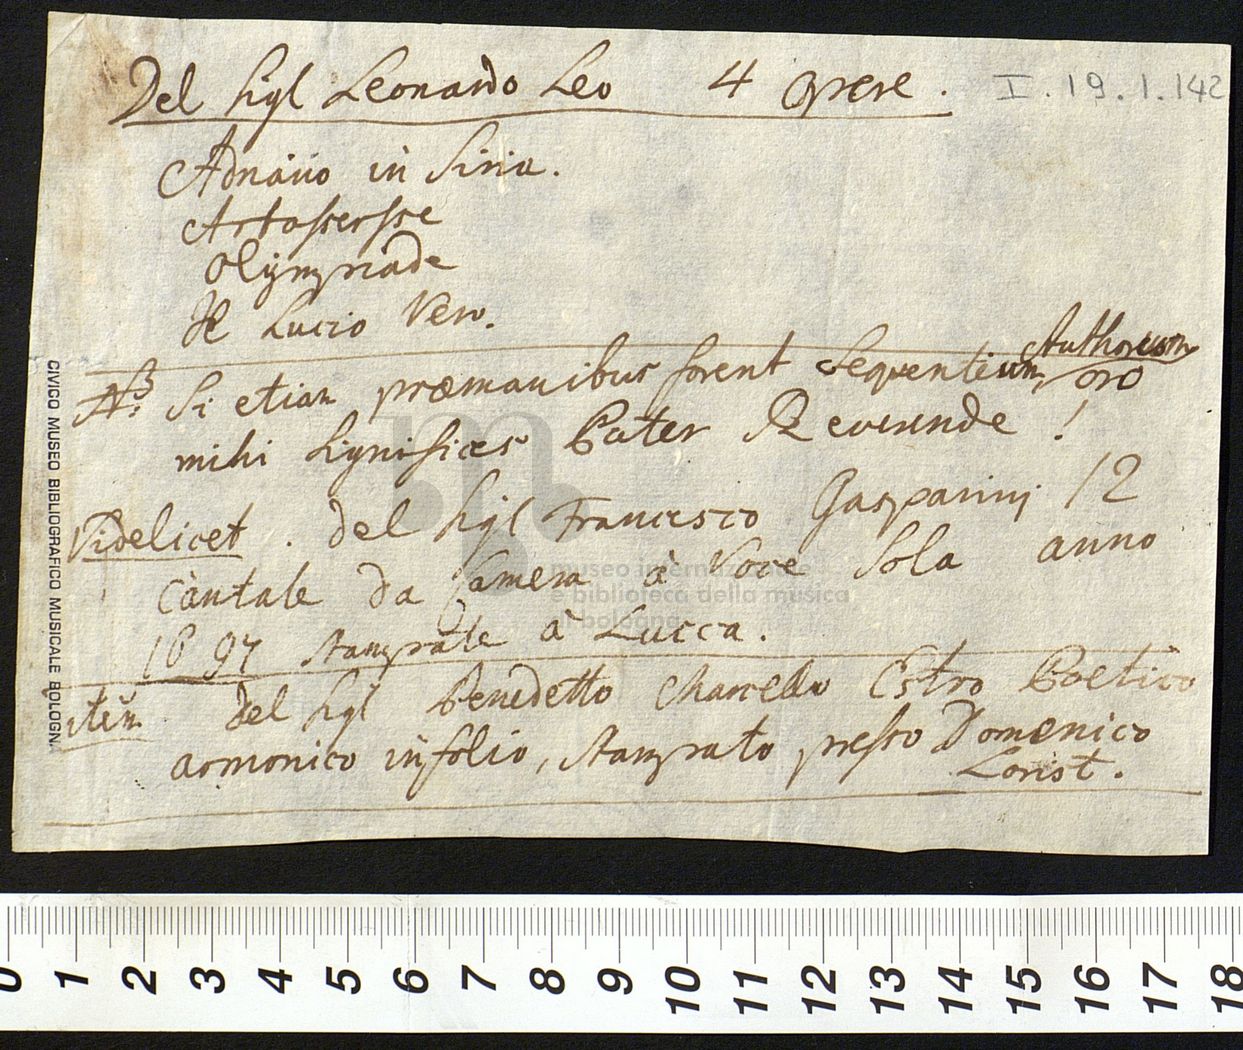 Del Sigl Leonardo Leo 4 Opere.
I.19.1.142
Adriano in Siria.
Artassersse
Olympiade
Il Lucio Vero.
NB: Si etiam præmanibus forent Sequentium Authorum
oro
mihi Significes Pater Reverende!
Videlicet. del Sigl Francesco Gasparinj 12
Càntate da Camera à Voce Sola anno
1697 stampate à Lucca.
item del Sigl Benedetto Marcello Estro Poetico
armonico in folio, stampato presso Domenico
Lovist.
CIVICO MUSEO BIBLIOGRAFICO MUSICALE BOLOGN.
museo internazionale
e biblioteca della musica
di bologna
0 1 2 3 4 5 6 7 8 9 10 11 12 13 14 15 16 17 18